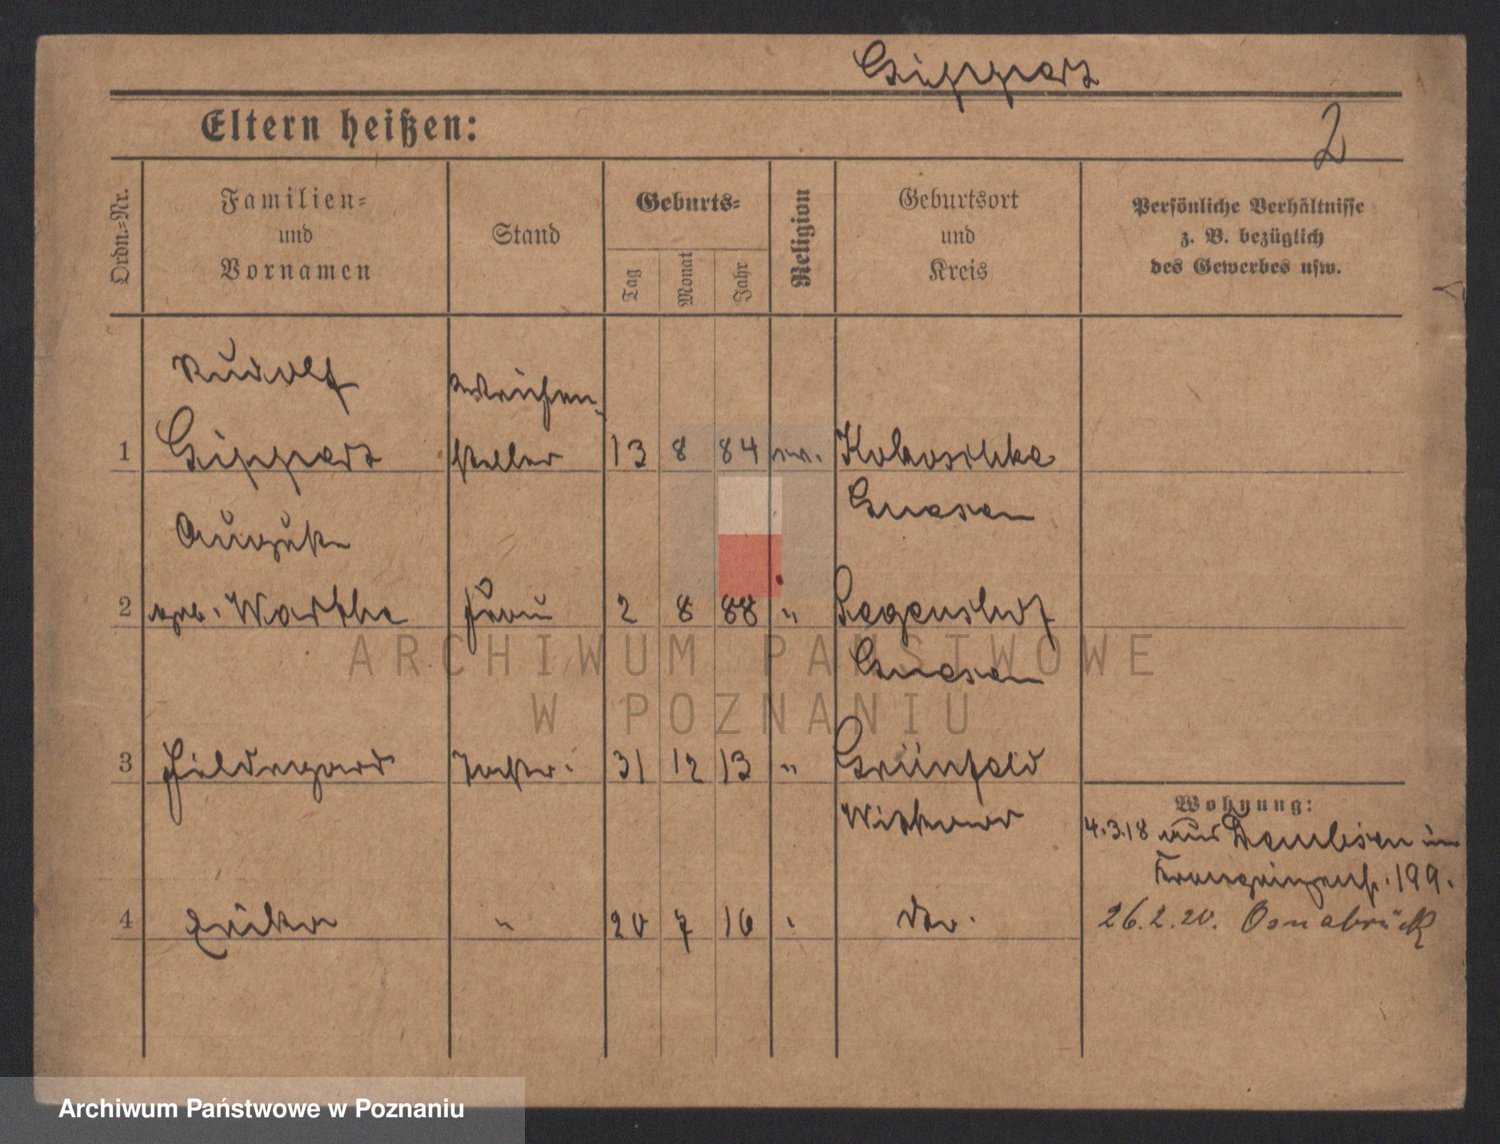 Gippert
2
Eltern heißen:
Ordn.-Nr.
Familien-
und
Vornamen
Stand
Geburts-
Tag
Monat
Jahr
Religion
Geburtsort
und
Kreis
Persönliche Verhältnisse
z. B. bezüglich
des Gewerbes usw.
Rudolf Weichen-
1 Gippert steller 13 8 84 ev. Kokoschke
Gnesen
Auguste
2 geb. Warthe Frau 2 8 88 "
Gnesen
3 Hildegard Tochter. 31 12 13 " Grünfeld
Witkowo
4 Erika " 20 7 16 do.
Wohnung:
4.3.18 aus Dembsen in
Kronprinzenstr. 199.
26.2.20. Osnabrück
ARCHIWUM PAŃSTWOWE
W POZNANIU
Archiwum Państwowe w Poznaniu